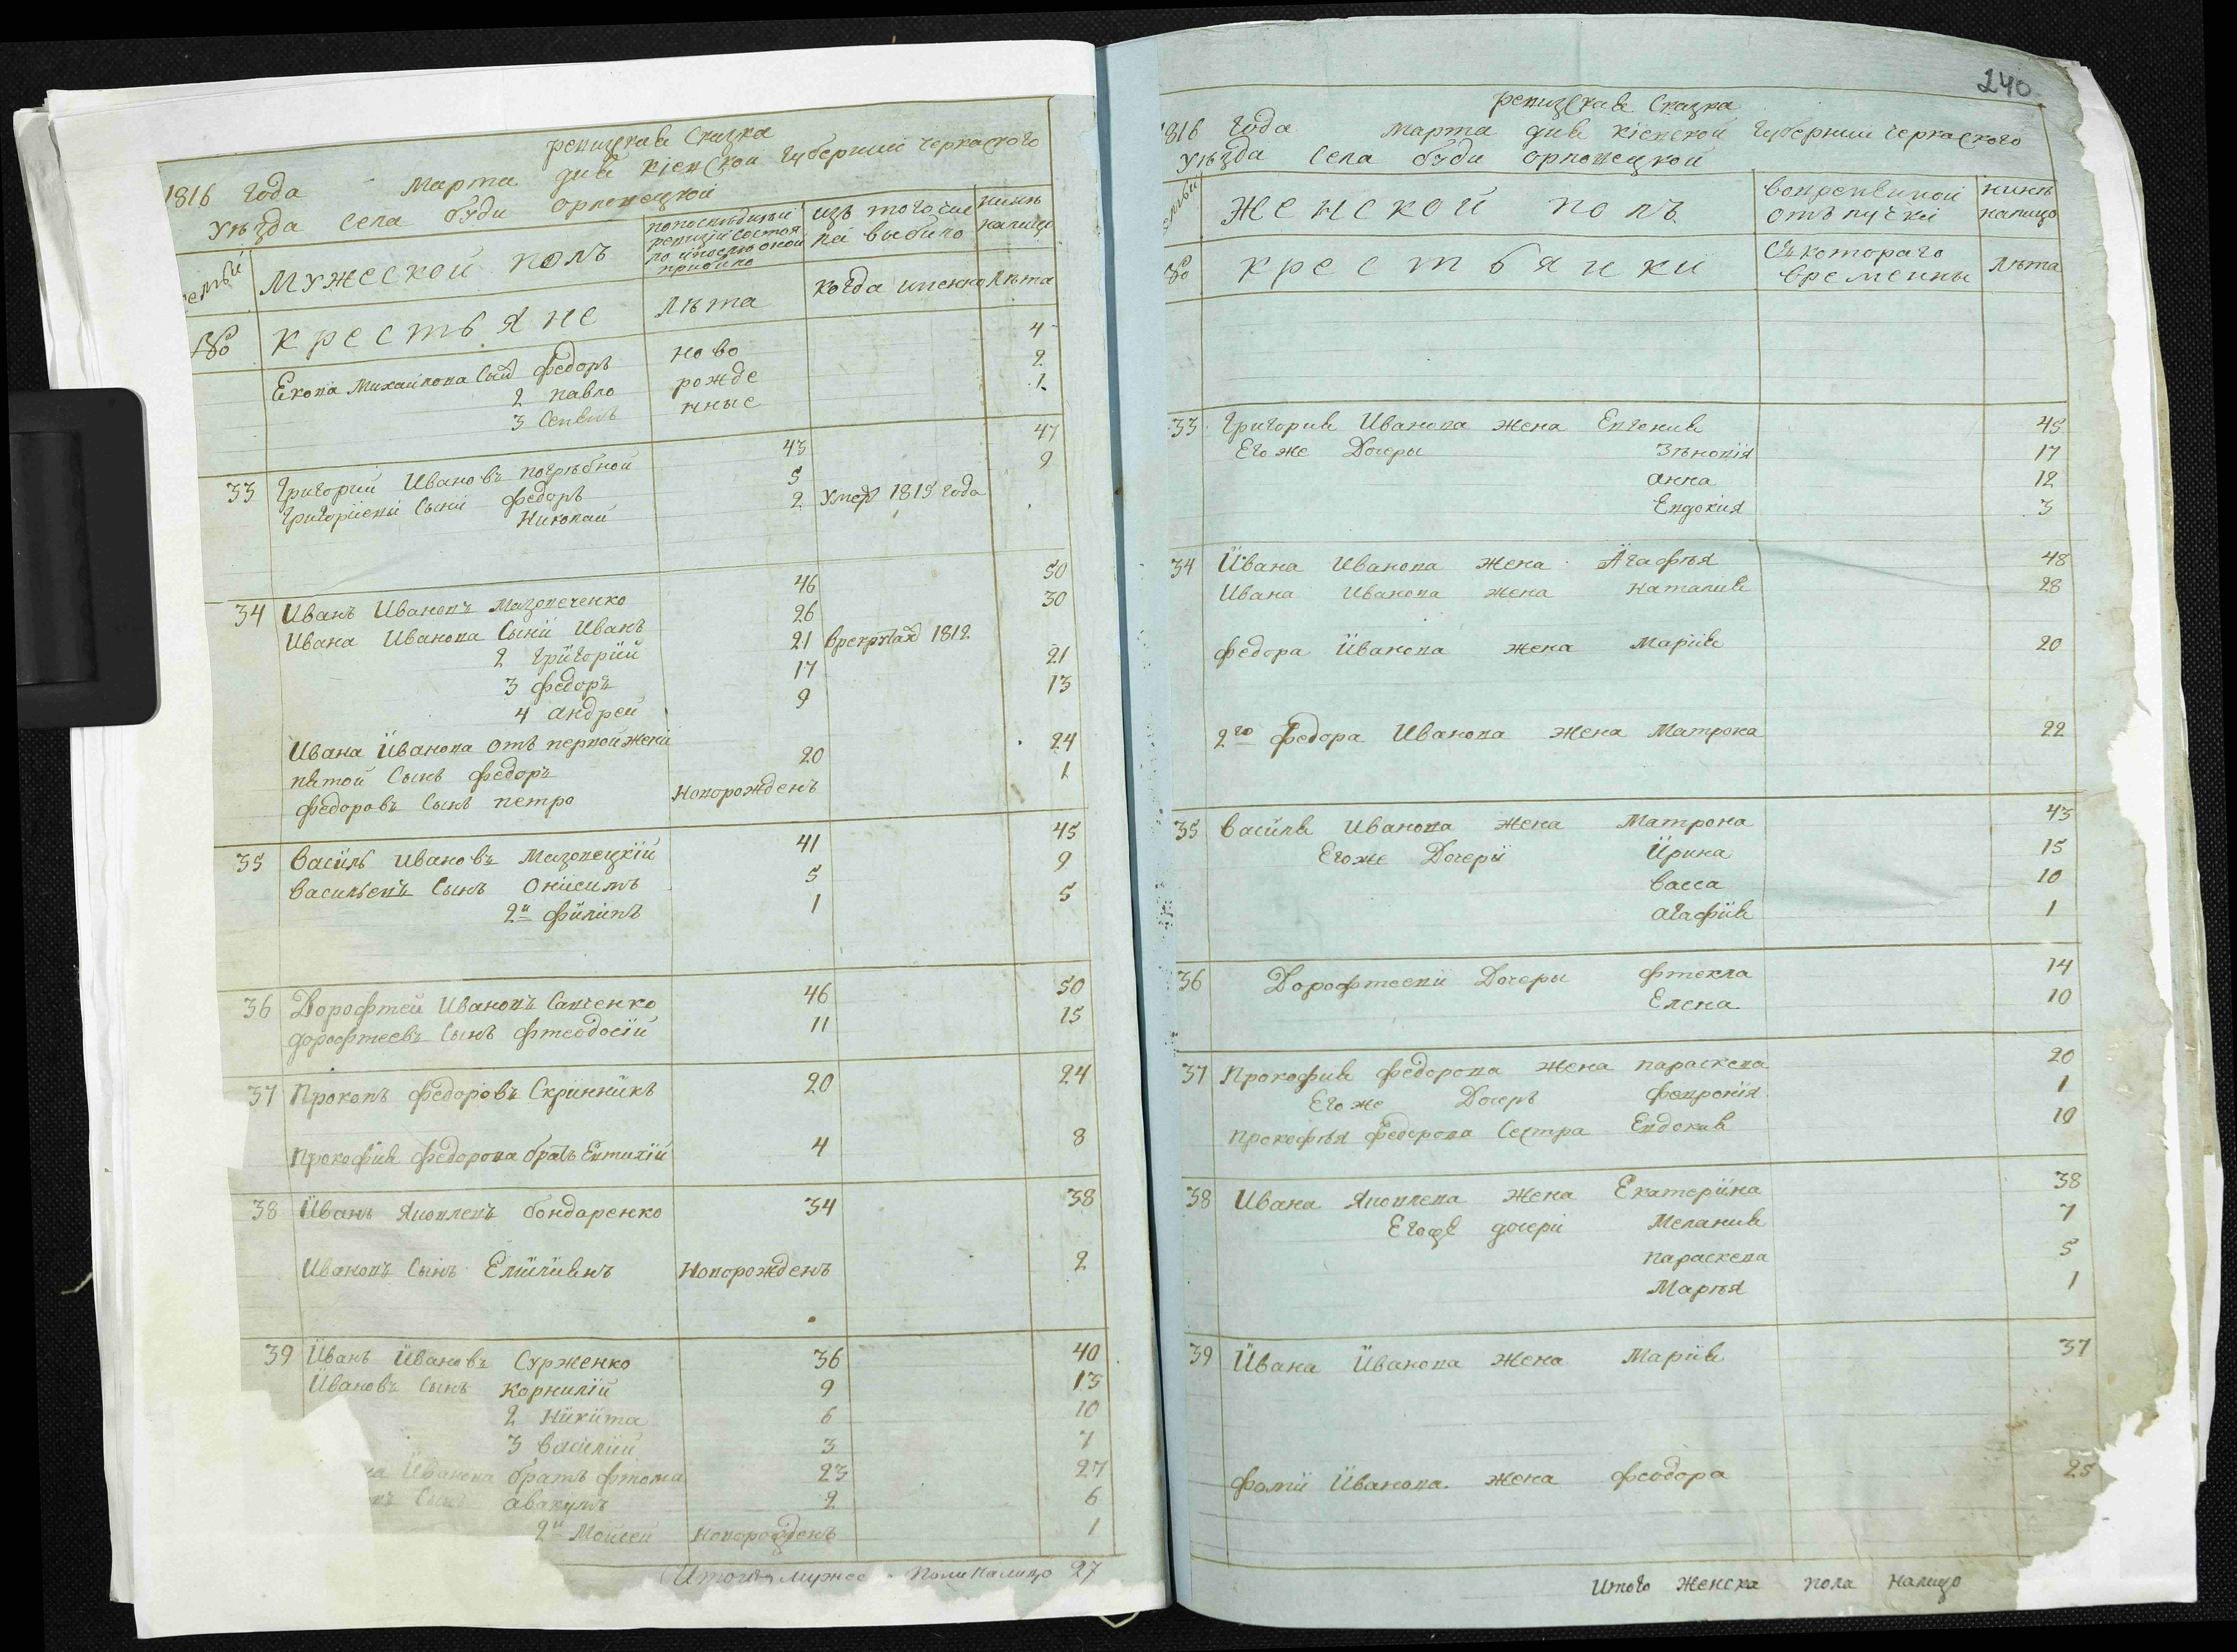 ревизская Сказка
1816 года марта дня кіевской губерніи черкаского
уѣзда села буди орловецкой
семьи
мужеской полъ
по последнѣй ревизіи состояло и после оной прибыло
изъ того числа выбыло
нинѣ налицо
№
крестьяне
лѣта
когда именно
лѣта
Якова Михаилова Сын федоръ ново 4
2 павло рожде 2
3 Семенъ нные 1
33 Григорий Ивановъ погрѣбной 43 47
Григориеви Сыни федоръ 5 9
Николай 2 умер 1815 года
34 Иванъ Ивановъ Мазопеченко 46 50
Ивана Иванова Сыни Иванъ 26 30
2 Григорий 21 в рекрутах 1812
3 федоръ 17 21
4 андрей 9 13
Ивана Иванова отъ первой жены
пятой Сынъ федоръ 20 24
федоровъ Сынъ петро новорожденъ 1
35 Василь Ивановъ Мазопецкій 41 45
Васильевъ Сынъ Онисимъ 5 9
2й филипъ 1 5
36 Дорофтей Ивановъ Савченко 46 50
дорофтеевъ Сынъ фтеодосій 11 15
37 Прокопъ федоровъ Скринникъ 20 24
Прокофия федорова братъ Евтихій 4 8
38 Иванъ Яковлевъ бондаренко 34 38
Ивановъ Сынъ Емилианъ новорожденъ 2
39 Иванъ Ивановъ Сурженко 36 40
Ивановъ Сынъ корнилій 9 13
2 Никита 6 10
3 василий 3 7
Иванова братъ фтома 23 27
Сынъ авакумъ 2 6
2й Мойсей новорожденъ 1
Итого мужес пола налицо 27
240
ревизская Сказка
1816 года марта дня кіевской губерніи черкаского
уѣзда села буди орловецкой
семьи
женской полъ
во временной отлучки
нинѣ налицо
№
крестьянки
Съ котораго времены
лѣта
33 Григория Иванова жена Евгения 43
Его же Дочеры Зѣновія 17
анна 12
Евдокия 3
34 Ивана Иванова жена Агафѣя 48
Ивана Иванова жена Наталия 28
федора Иванова жена Мария 20
2го федора Иванова жена Матрона 22
35 Василя Иванова жена Матрона 43
Его же Дочери Ирина 15
Васса 10
агафия 1
36 Дорофтееви Дочеры фтекла 14
Елена 10
37 Прокофия федорова жена параскева 20
Его же Дочеръ февронія 1
Прокофѣя федорова Сестра Евдокия 10
38 Ивана Яковлева жена Екатерина 38
Его же дочери Мелания 7
параскева 5
Марѣя 1
39 Ивана Иванова жена Мария 37
фоми Иванова жена феодора 25
Итого Женска пола налицо